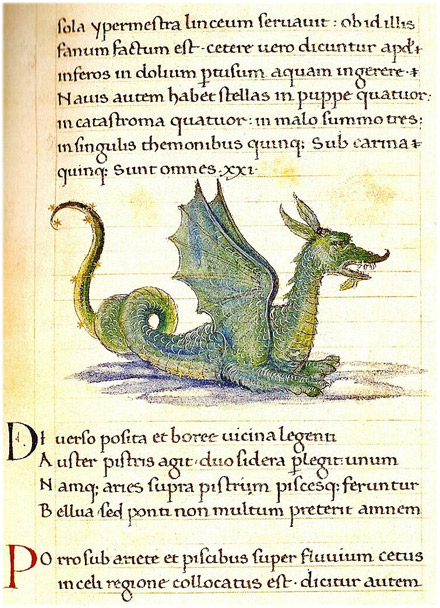 sola ypermestra linceum seruauit : ob id illis
fanum factum est · cetere uero dicuntur apd'
inferos in dolium ptusum aquam ingerere ·
Nauis autem habet stellas in puppe quatuor:
in catastroma quatuor: in malo summo tres:
in singulis themonibus quinq; Sub carina
quinq; Sunt omnes · xxi ·
DI uerso posita et boree uicina legenti
A uster pistris agit · duo sidera plegit unum
N amq; aries supra pistrim piscesq; feruntur
B ellua sed ponti non multum preterit amnem
PO rro sub ariete et piscibus super fluuium cetus
in celi regione collocatus est · dicitur autem